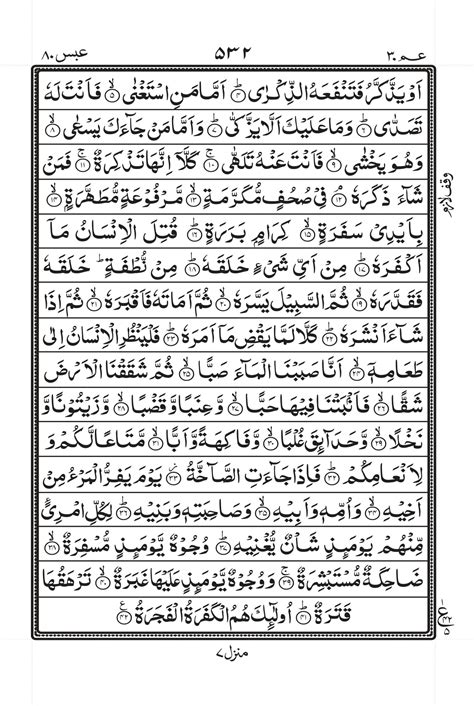 عبس ٨٠ ٥٣٢ عـم ٣٠
اَوۡ يَذَّكَّرُ فَتَنۡفَعَهُ الذِّكۡرٰى ؕ‏﴿۴﴾ اَمَّا مَنِ اسۡتَغۡنٰىۙ‏﴿۵﴾ فَاَنۡتَ لَهٗ
تَصَدّٰىؕ‏﴿۶﴾ وَمَا عَلَيۡكَ اَلَّا يَزَّكّٰىؕ‏﴿۷﴾ وَاَمَّا مَنۡ جَآءَكَ يَسۡعٰىۙ‏﴿۸﴾
وَهُوَ يَخۡشٰىۙ‏﴿۹﴾ فَاَنۡتَ عَنۡهُ تَلَهّٰىۚ‏﴿۱۰﴾ كَلَّاۤ اِنَّهَا تَذۡكِرَةٌ ۚ‏﴿۱۱﴾ فَمَنۡ
شَآءَ ذَكَرَهٗۘ‏﴿۱۲﴾ فِىۡ صُحُفٍ مُّكَرَّمَةٍۙ‏﴿۱۳﴾ مَّرۡفُوۡعَةٍ مُّطَهَّرَةٍ ۙ‏﴿۱۴﴾
بِاَيۡدِىۡ سَفَرَةٍۙ‏﴿۱۵﴾ كِرَامٍۢ بَرَرَةٍؕ‏﴿۱۶﴾ قُتِلَ الۡاِنۡسَانُ مَاۤ
اَكۡفَرَهٗؕ‏﴿۱۷﴾ مِنۡ اَىِّ شَىۡءٍ خَلَقَهٗؕ‏﴿۱۸﴾ مِنۡ نُّطۡفَةٍؕ خَلَقَهٗ
فَقَدَّرَهٗ ۙ‏﴿۱۹﴾ ثُمَّ السَّبِيۡلَ يَسَّرَهٗۙ‏﴿۲۰﴾ ثُمَّ اَمَاتَهٗ فَاَقۡبَرَهٗۙ‏﴿۲۱﴾ ثُمَّ اِذَا
شَآءَ اَنۡشَرَهٗؕ‏﴿۲۲﴾ كَلَّا لَمَّا يَقۡضِ مَاۤ اَمَرَهٗؕ‏﴿۲۳﴾ فَلۡيَنۡظُرِ الۡاِنۡسَانُ اِلٰى
طَعَامِهٖۤۙ‏﴿۲۴﴾ اَنَّا صَبَبۡنَا الۡمَآءَ صَبًّا ۙ‏﴿۲۵﴾ ثُمَّ شَقَقۡنَا الۡاَرۡضَ
شَقًّا ۙ‏﴿۲۶﴾ فَاَنۡۢبَتۡنَا فِيۡهَا حَبًّا ۙ‏﴿۲۷﴾ وَّ عِنَبًا وَّقَضۡبًا ۙ‏﴿۲۸﴾ وَّزَيۡتُوۡنًا وَّ
نَخۡلًا ؕ‏﴿۲۹﴾ وَحَدَآٮِٕقَ غُلۡبًا ۙ‏﴿۳۰﴾ وَّفَاكِهَةً وَّاَبًّا ۙ‏﴿۳۱﴾ مَّتَاعًا لَّكُمۡ وَ
لِاَنۡعَامِكُمۡؕ‏﴿۳۲﴾ فَاِذَا جَآءَتِ الصَّآخَّةُ‏﴿۳۳﴾ يَوۡمَ يَفِرُّ الۡمَرۡءُ مِنۡ
اَخِيۡهِۙ‏﴿۳۴﴾ وَاُمِّهٖ وَاَبِيۡهِۙ‏﴿۳۵﴾ وَصَاحِبَتِهٖ وَبَنِيۡهِؕ‏﴿۳۶﴾ لِكُلِّ امۡرِیءٍ
مِّنۡهُمۡ يَوۡمَٮِٕذٍ شَاۡنٌ يُّغۡنِيۡهِؕ‏﴿۳۷﴾ وُجُوۡهٌ يَّوۡمَٮِٕذٍ مُّسۡفِرَةٌ ۙ‏﴿۳۸﴾
ضَاحِكَةٌ مُّسۡتَبۡشِرَةٌ ۚ‏﴿۳۹﴾ وَوُجُوۡهٌ يَّوۡمَٮِٕذٍ عَلَيۡهَا غَبَرَةٌ ۙ‏﴿۴۰﴾ تَرۡهَقُهَا
قَتَرَةٌ ؕ‏﴿۴۱﴾ اُولٰٓٮِٕكَ هُمُ الۡكَفَرَةُ الۡفَجَرَةُ‏﴿۴۲﴾
وقف لازم
ع ٤٢ ٥
منزل ٧